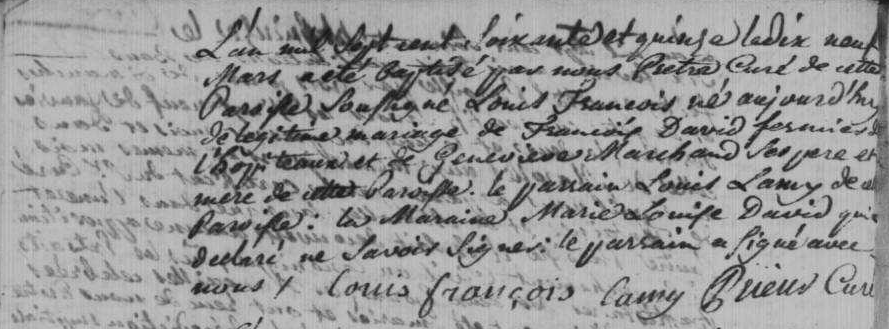 L'an mil sept cent soixante et quinze le dix neuf
Mars a eté baptisé par nous Pretre Curé de cette
Paroisse soussigné Louis Francois né aujourd'huy
de legitime mariage de François David fermier de
et de Genevieve Marchand ses pere et
mere de cette Paroisse. le parrain Louis Lamy de
Paroisse: la Maraine Marie Louise David qui a
declaré ne savoir signer. le parrain a signé avec
nous / Louis françois Lamy Prieur Curé